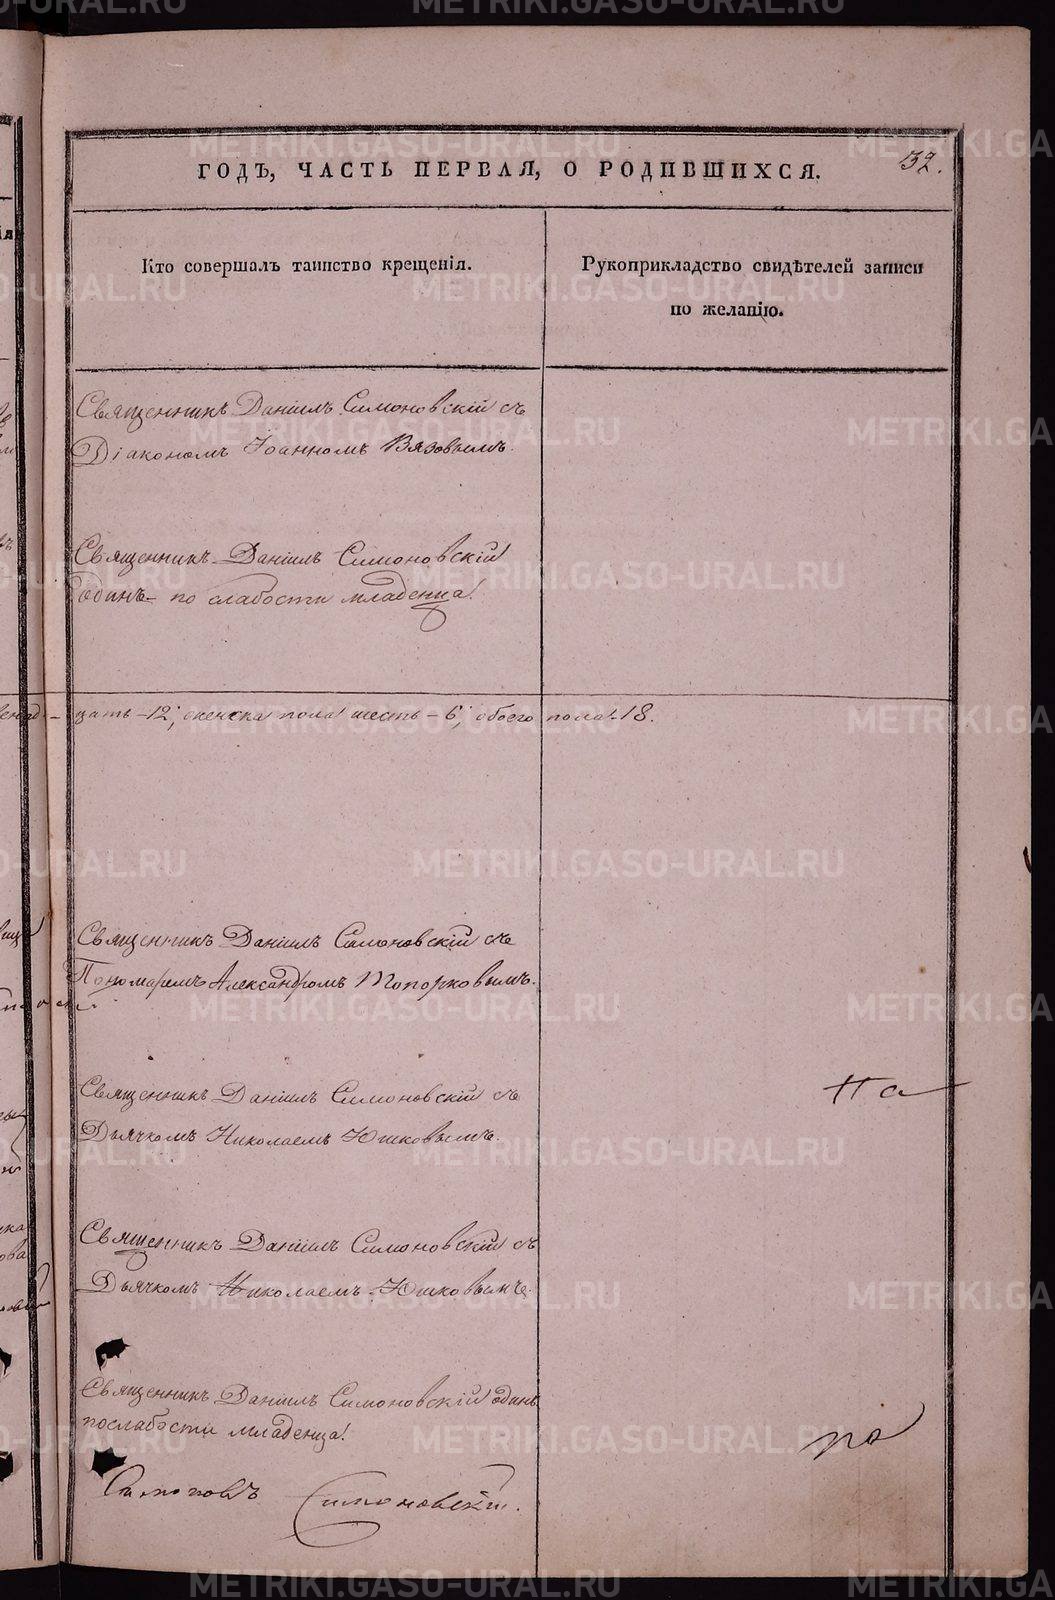 132.
ГОДЪ, ЧАСТЬ ПЕРВАЯ, О РОДИВШИХСЯ.
Кто совершалъ таинство крещенія.
Рукоприкладство свидѣтелей записи
по желанію.
Священникъ Даніилъ Симоновскій съ
Діакономъ Іоанномъ Вязовымъ.
Священникъ Даніилъ Симоновскій
одинъ по слабости младенца.
цать - 12; женска пола шесть - 6; обоего пола 18.
Священникъ Даніилъ Симоновскій съ
Пономаремъ Александромъ Топорковымъ.
Священникъ Даніилъ Симоновскій съ
Дьячкомъ Николаемъ Юшковымъ.
на
Священникъ Даніилъ Симоновскій съ
Дьячкомъ Николаемъ Юшковымъ.
Священникъ Даніилъ Симоновскій одинъ
по слабости младенца.
ро
Симоновскій.
METRIKI.GASO-URAL.RU